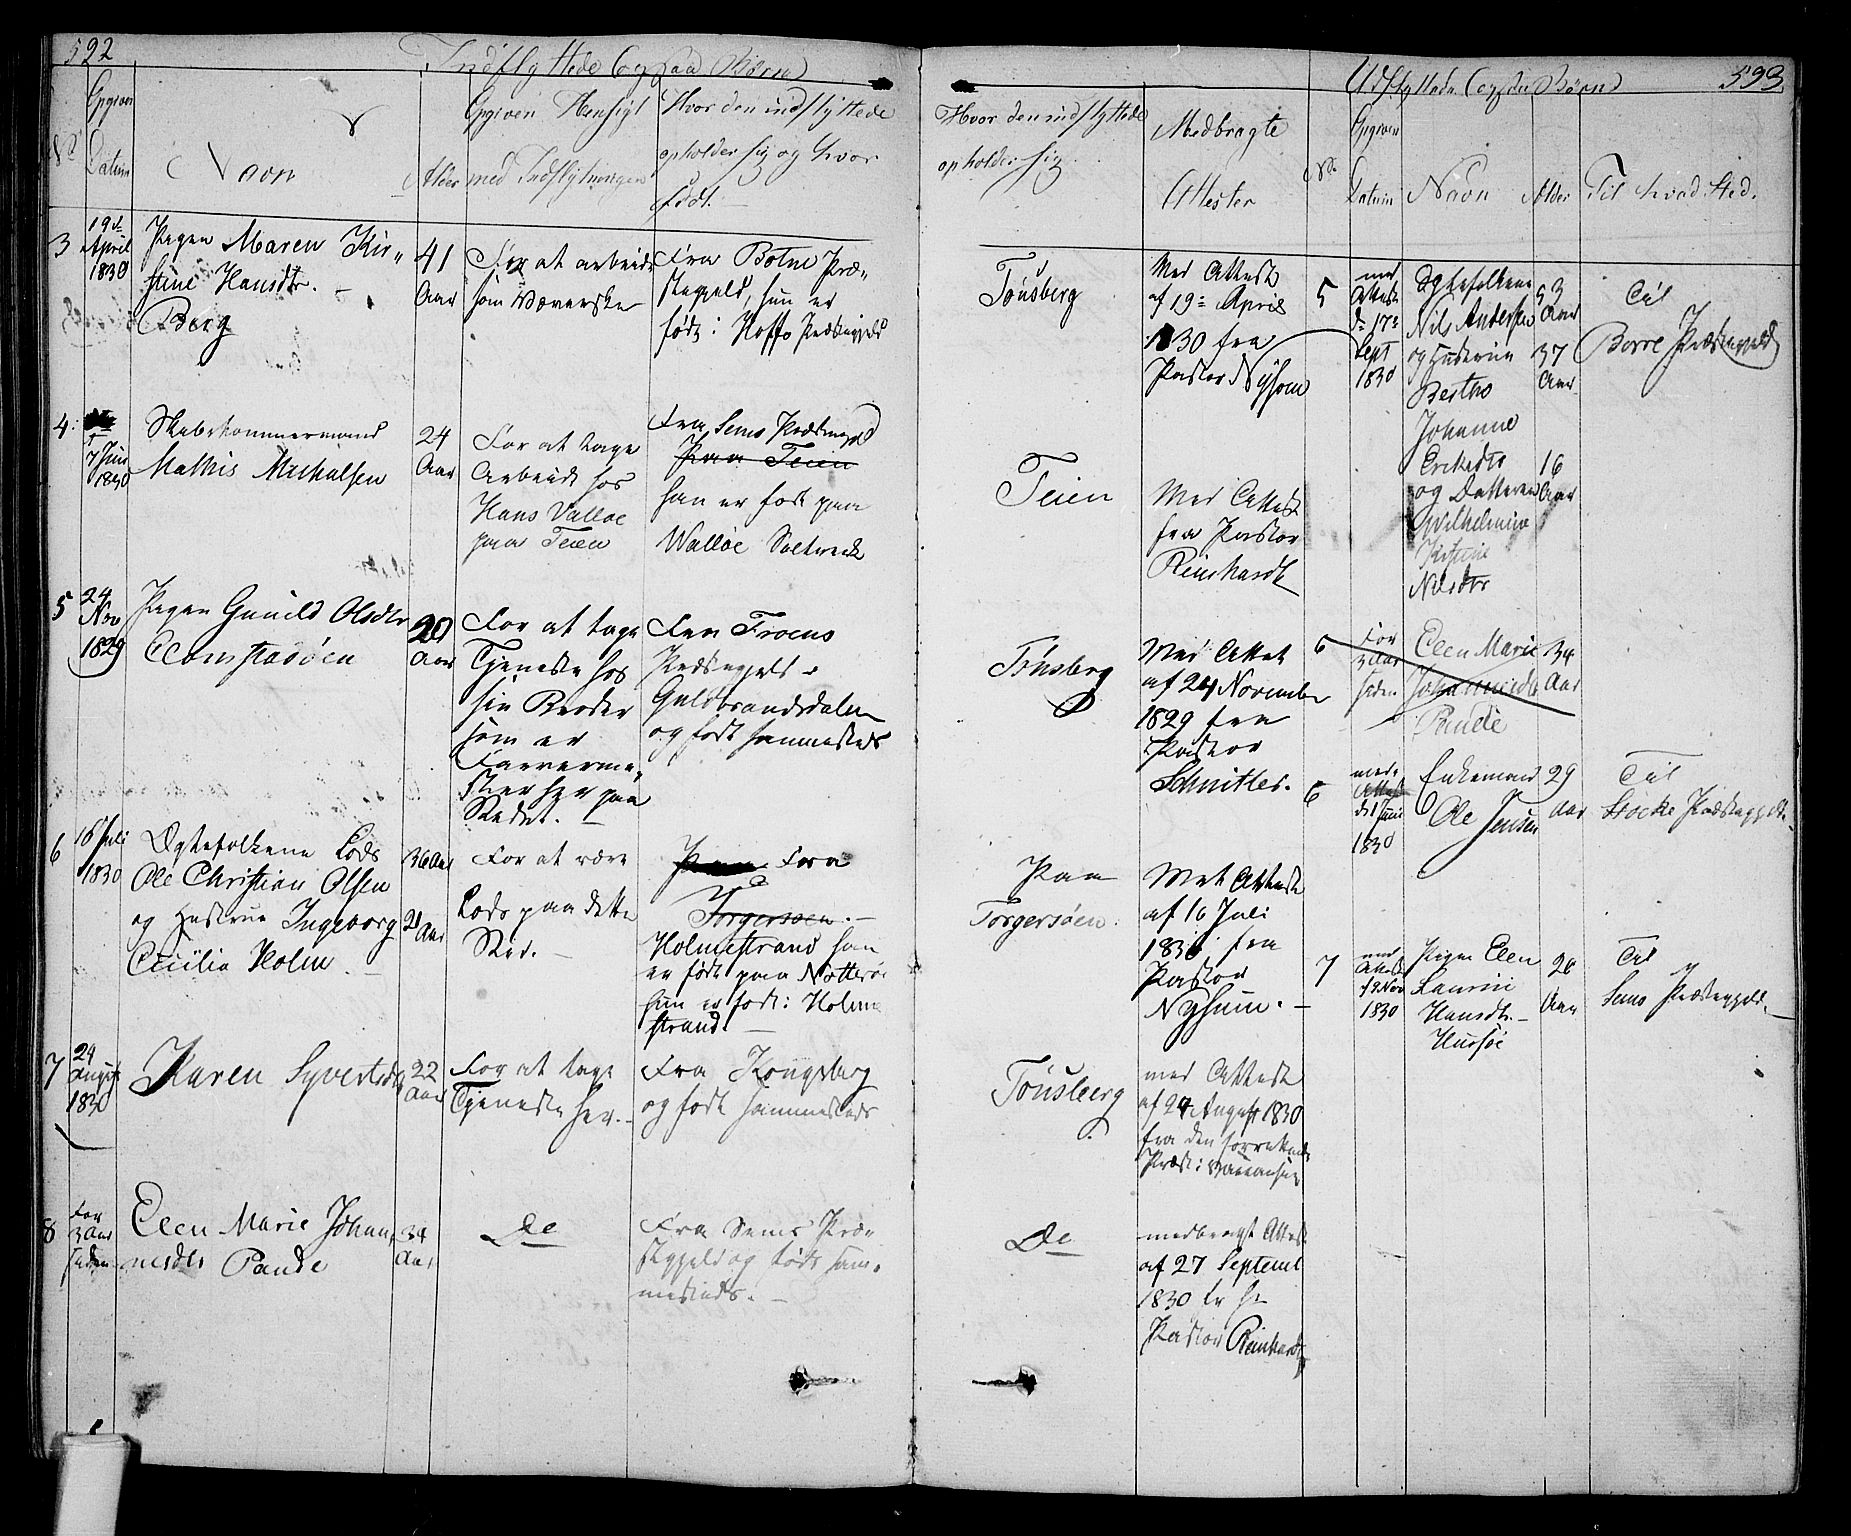 592
Indflyttede (ogsaa Børn)
No
Opgiven
Datum
Navn
Alder
Opgiven Hensigt
med Indflytningen
Hvor den indflyttede
opholder sig og hvor
født.
3
19de
April
1830
Pigen Maren Kir-
stine Hansdtr. -
Berg
41
Aar
For at arbeide
som Væverske
Fra Botne Præ-
stegjeld, hun er
født i Hoffs Præstegjeld
4.
7 Juni
1830
Mathis Michalsen
24
Aar
For at tage
Arbeide hos
Hans Valløe
paa Teien
Fra Sems Præstegjeld
paa Teien
han er født paa
Walløe Saltværk
5
24
Nov
1829
Pigen Gunild Olsdtr
20
Aar
For at tage
Tjeneste hos
sin Broder
som er
Farverme-
ster her paa
Stedet. -
Fra Froens
Præstegjeld i
Guldbrandsdalen
og født sammesteds
6
16 Juli
1830
Ægtefolkene Lods
Ole Christian Olsen
og Hustrue Ingeborg
Cecilia Holm -
36 Aar
21 Aar
For at være
Lods paa dette
Sted. -
Paa Fra
Torgersøen. -
Holmestrand han
er født paa Nøtterøe
hun er født i Holme
strand. -
7
24
August
1830
Karen Syvertsdtr
22
Aar
For at tage
Tjeneste her. -
Fra Kongsberg
og født sammesteds
8
For
3 Aar
siden
Elen Marie Johan-
nesdtr Rande
34
Aar
De
Fra Sems Præ-
stegjeld og født sam-
mesteds. -
593
Udflyttede (ogsaa Børn)
Hvor den indflyttede
opholder sig
Medbragte
Attester
No
Opgiven
Datum
Navn
Alder
Til hvad Sted.
Tønsberg
Med Attest
af 19de April
1830 fra
Pastor Nysom
Teien
Med Attest
fra Pastor
Reinhardt
Tønsberg
Med Attest
af 24 November
1829 fra
Pastor
Schnitler.
Paa
Torgersøen.
Med Attest
af 16 Juli
1830 fra
Pastor
Nysum. -
Tønsberg
med Attest
af 24 August 1830
fra den forrettende
De
medbragt Attest
af 27 Septemb
1830
Pastor Reinhardt
5
med
Attest
d. 17de
Sept
1830
Ægtefolkene
Nils Andersen
og Hustrue
Berthe
Johanne
Ericsdtr
og Datteren
Wilhelmine
Nilsdtr
53
Aar
37
Aar
16
Aar
Til
Borre Præstegjeld
6
For
3 Aar
siden
Elen Marie
Johannisdtr
Rande
34
Aar
6
med
Attest
1830
Enkemand
Ole Jensen
29
Aar
Til
Stocke Præstegjeld.
7
med
Attest
1830
Pigen Elen
Laurine
Hansdtr. -
Husøe
26
Aar
Til
Sems Præstegjeld. -